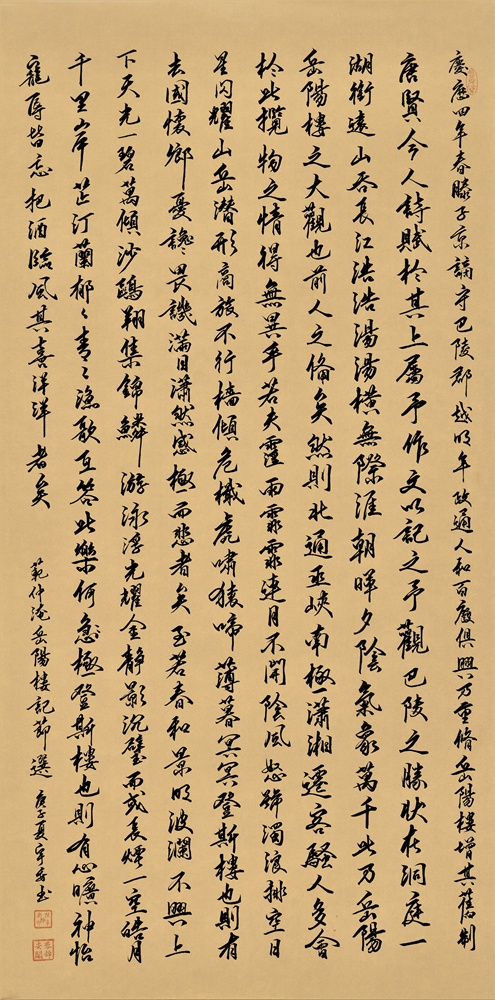 慶歷四年春滕子京謫守巴陵郡越明年政通人和百廢俱興乃重脩岳陽樓增其舊制
唐賢今人詩賦於其上屬予作文以記之予觀巴陵之勝狀在洞庭一
湖銜遠山吞長江浩浩湯湯橫無際涯朝暉夕陰氣象萬千此乃岳陽
岳陽樓之大觀也前人之俻矣然則北通巫峽南極瀟湘遷客騷人多會
於此攬物之情得無異乎若夫霪雨霏霏連月不開陰風怒號濁浪排空日
星閃耀山岳潛形商旅不行檣傾危檝虎嘯猿啼薄暮冥冥登斯樓也則有
去國懷鄉憂讒畏譏滿目瀟然感極而悲者矣至若春和景明波瀾不興上
下天光一碧萬傾沙鷗翔集錦鱗游泳浮光耀金靜影沉璧而或長煙一空皓月
千里岸芷汀蘭郁々青々漁歌互答此樂何急極登斯樓也則有心曠神怡
寵辱皆忘把酒臨風其喜洋洋者矣
範仲淹岳陽樓記節選
庚子夏 書